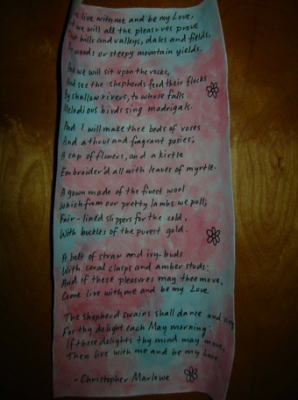 live with me and be my Love,
we will all the pleasures prove
hills and valleys, dales and fields,
woods or steepy mountain yields.
And we will sit upon the rocks,
And see the shepherds feed their flocks
By shallow rivers, to whose falls
Melodious birds sing madrigals.
And I will make thee beds of roses
And a thousand fragrant posies;
A cap of flowers, and a kirtle
Embroider'd all with leaves of myrtle.
A gown made of the finest wool
Which from our pretty lambs we pull;
Fair-lined slippers for the cold,
With buckles of the purest gold.
A belt of straw and ivy-buds
With coral clasps and amber studs:
And if these pleasures may thee move,
Come live with me and be my Love.
The shepherd swains shall dance and sing
For thy delight each May morning:
If these delights thy mind may move,
Then live with me and be my Love.
-Christopher Marlowe